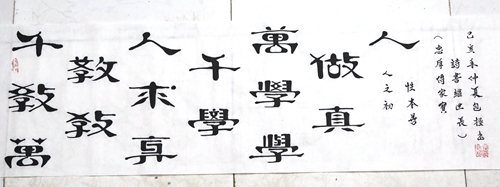 千教萬
教教
人求真
千學
萬學學
做真
人
人之初
性本善
(忠厚傳家寶
詩書繼世長)
己亥年仲夏